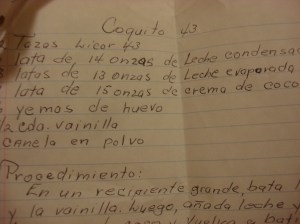 Coquito 43
Tazas Licor 43
lata de, 14 onzas de Leche condensa
latas de 13 onzas de Leche evaporada
lata de 15 onzas de crema de coco
yemas de huevo
1/2 cda. vainilla
canela en polvo
Procedimiento:
En un recipiente grande, bata l
y la vainilla. Luego, añada leche y
y vuelva a bat